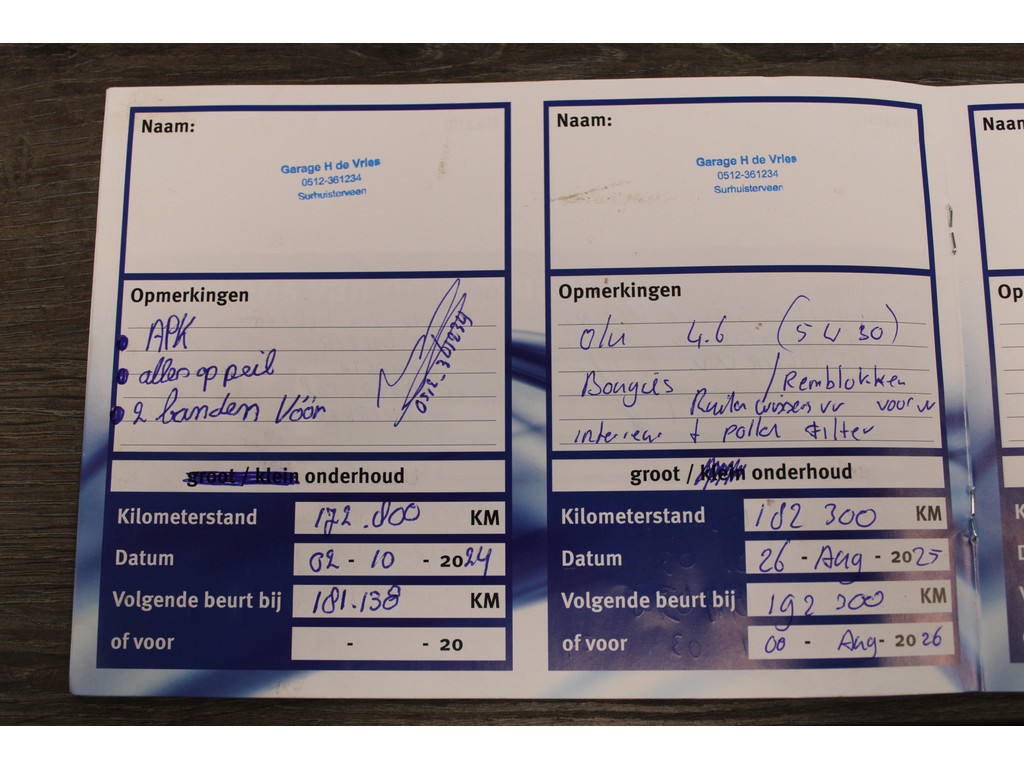 Naam:
Garage H de Vries
0512-361234
Surhuisterveen
Opmerkingen
APK
alles op peil
2 banden Vóór
0512-361234
groot / klein onderhoud
Kilometerstand 172.800 KM
Datum 02 - 10 - 2024
Volgende beurt bij 181.138 KM
of voor - - 20
Naam:
Garage H de Vries
0512-361234
Surhuisterveen
Opmerkingen
olie 4.6 (5W30)
Bougies / Remblokken
Ruiten wissers voor
interieur + pollen filter
groot / klein onderhoud
Kilometerstand 182 300 KM
Datum 26 - Aug - 2025
Volgende beurt bij 192 300 KM
of voor 00 - Aug - 2026
Naam
Op